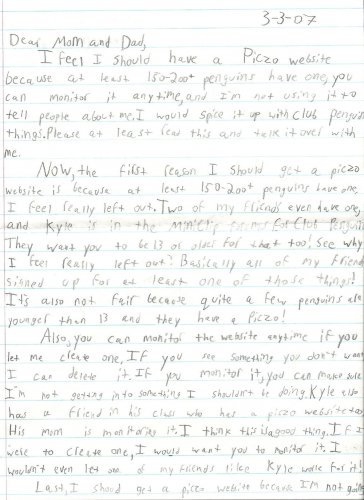 3-3-07
Dear Mom and Dad,
I feel I should have a Piczo website
because at least 150-200+ penguins have one, you
can monitor it anytime, and I'm not using it to
tell people about me, I would spice it up with Club Penguin
things. Please at least read this and talk it over with
me.
Now, the first reason I should get a piczo
website is because at least 150-200+ penguins have one,
I feel really left out. Two of my friends even have one,
and Kyle is in the for Club Penguin
They want you to be 13 or older for that too! See why
I feel really left out? Basically all of my friends
signed up for at least one of those things!
It's also not fair because quite a few penguins are
younger than 13 and they have a Piczo!
Also, you can monitor the website anytime if you
let me create one, If you see something you don't want
I can delete it. If you monitor it, you can make sure
I'm not getting into something I shouldn't be doing. Kyle also
has a friend in his class who has a piczo website too
His mom is monitoring it. I think this is a good thing. If I
were to create one, I would want you to monitor it. I
wouldn't even let one of my friends like Kyle work for it!
Last, I shoud get a piczo website because I'm not going